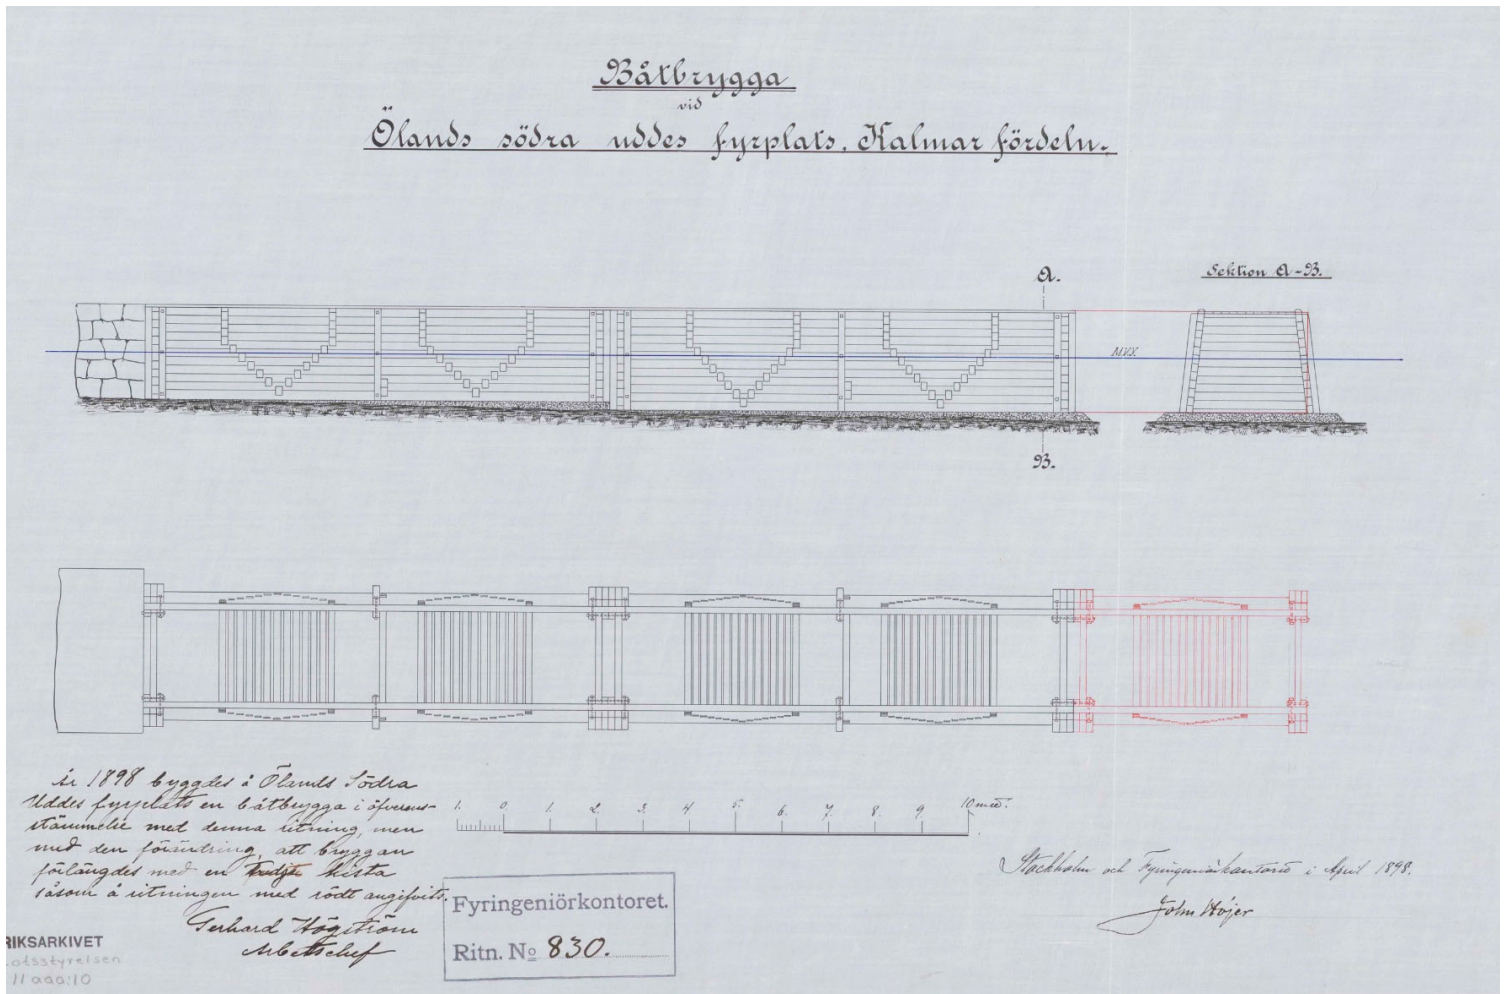 Båtbrygga
vid
Ölands södra uddes fyrplats. Kalmar fördeln.
A.
Sektion A-B.
M.V.Y.
B.
År 1898 byggdes å Ölands Södra
Uddes fyrplats en båtbrygga i öfverens-
stämmelse med denna ritning, men
med den förändring, att bryggan
förlängdes med en tredje kista
såsom å ritningen med rödt angifvits.
Gerhard Högström
Arbetschef
1. 0 1. 2. 3. 4 5. 6. 7. 8. 9. 10 met.
Stockholm och Fyringeniörkontoret i April 1898.
John Höjer
Fyringeniörkontoret.
Ritn. No 830.
RIKSARKIVET
otsstyrelsen
11 aaa:10